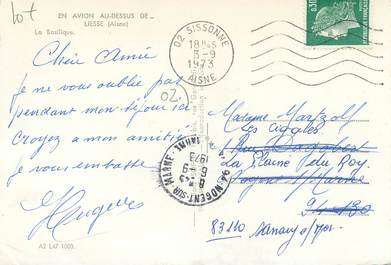 lot
EN AVION AU-DESSUS DE...
LIESSE (AISNE)
La Basilique.
02 SISSONNE
18H45
3-9
1973
AISNE
0,50
POSTES
Chère Amie
je ne vous oublie pas
pendant mon séjour ici
Croyez a mon amitié
je vous embrasse
02.
Madame Martzolf
Les Cigales
La Plaine du Roy
Nogent s/Marne
94-130
83110 Sanary s/mer
94 NOGENT-SUR-MARNE
1973
A2 L47 1005.